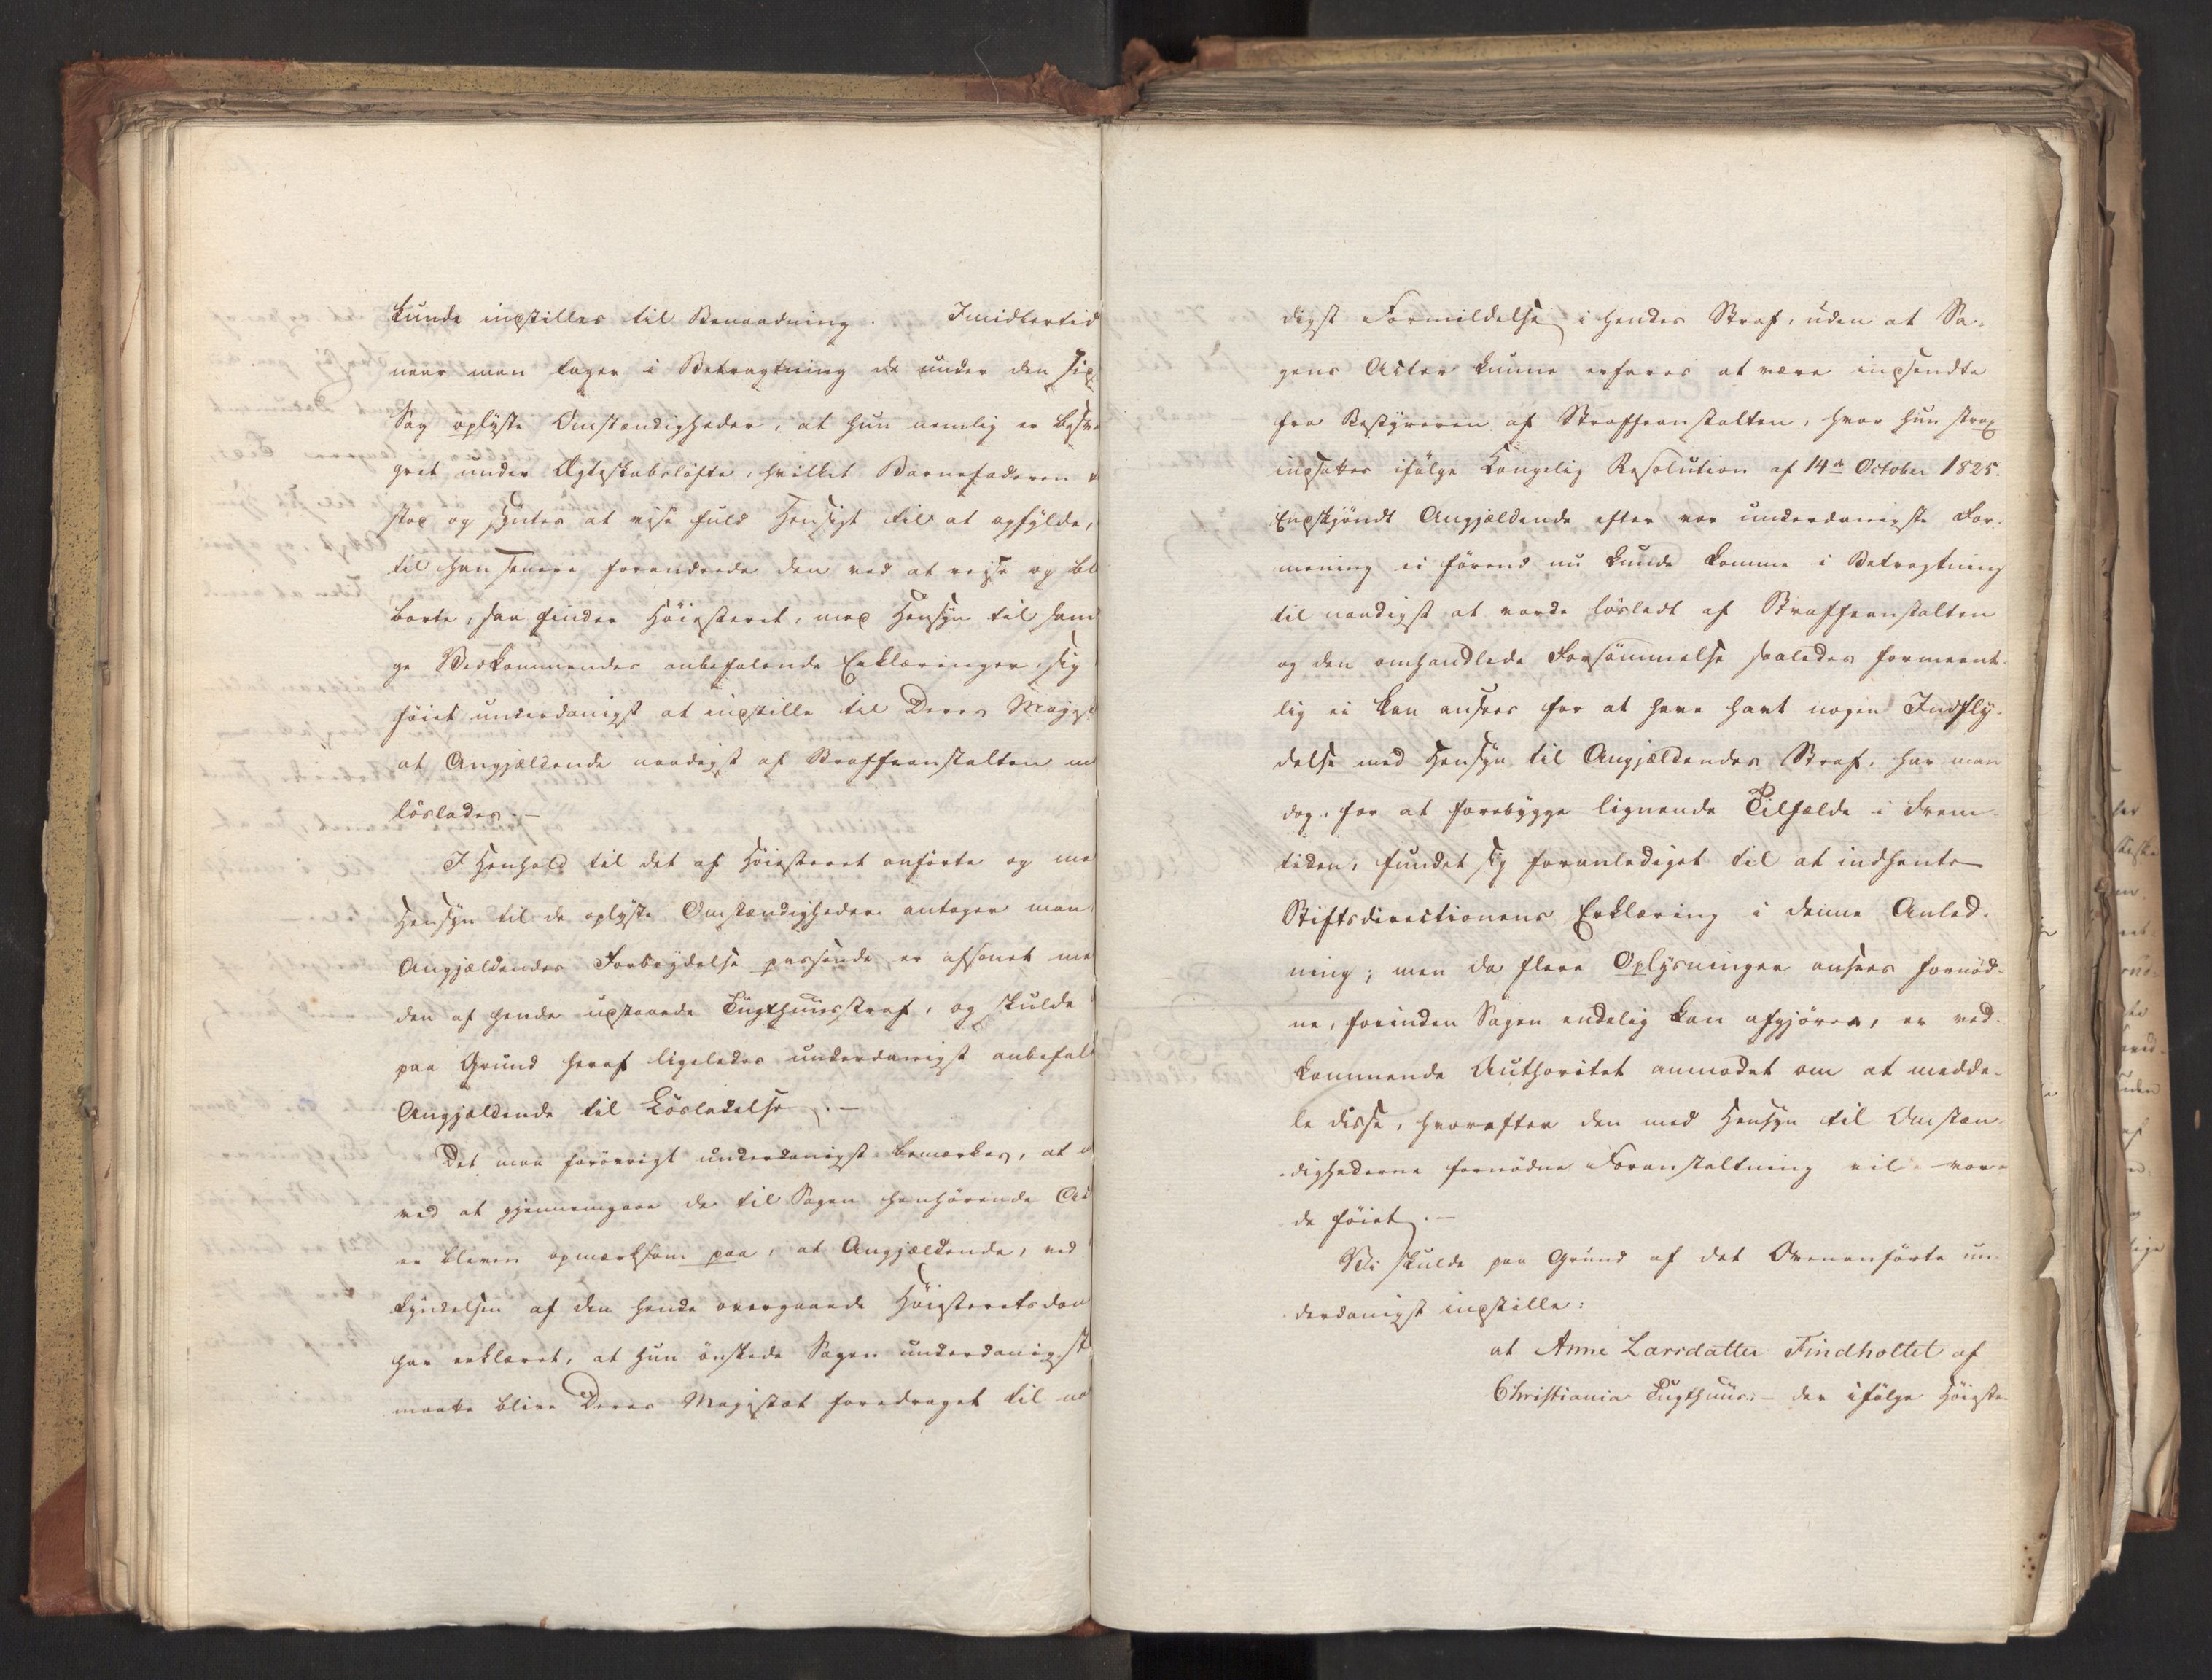 kunde indstilles til Benaadning. Imidlertid
naar man tager i Betragtning de under den sid
Sag oplyste Omstændigheder, at hun nemlig er besvan
gret under Ægteskabsløfte, hvilket Barnefaderen
stod og syntes at vise fuld Hensigt til at opfylde,
til han senere forandrede den ved at reise og bl
borte, saa finder Høiesteret, med Hensyn til sam
ge Vedkommendes anbefalende Erklæringer, sig
føiet underdanigst at indstille til Deres Majest
at Angjældende naadigst af Straffeanstalten m
løslades.-
I Henhold til det af Høiesteret anførte og me
Hensyn til de oplyste Omstændigheder antager man
Angjældendes Forbrydelse passende er afsonet me
den af hende udstaaede Tugthuusstraf, og skulde
paa Grund heraf ligeledes underdanigst anbefale
Angjældende til Løsladelse.-
Det maa forøvrigt underdanigst bemærkes, at
ved at gjennemgaae de til Sagen henhørende Act
er bleven opmærksom paa, at Angjældende, ved
kyndelsen af den hende overgaaede Høiesteretsdom
har erklæret, at hun ønskede Sagen underdanigst
maatte blive Deres Majestæt foredraget til na
digst Formildelse i hendes Straf, uden at Sa-
gens Acter kunne erfares at være indsendte
fra Bestyreren af Straffeanstalten, hvor hun strax
indsattes ifølge Kongelig Resolution af 14de October 1825.
Endskjøndt Angjældende efter vor underdanigste For-
mening ei førend nu kunde komme i Betragtning
til naadigst at vorde løsladt af Straffeanstalten
og den omhandlede Forsømmelse saaledes formeent-
lig ei kan ansees for at have havt nogen Indfly-
delse med Hensyn til Angjældendes Straf, har man
dog, for at forebygge lignende Tilfælde i Frem-
tiden, fundet sig foranlediget til at indhente
Stiftsdirectionens Erklæring i denne Anled-
ning; men da flere Oplysninger ansees fornød-
ne, forinden Sagen endelig kan afgjøres, er ved-
kommende Authoritet anmodet om at medde-
le disse, hvorefter den med Hensyn til Omstæn-
dighederne fornødne Foranstaltning vil vor-
de føiet.-
Vi skulde paa Grund af det Ovenanførte un-
derdanigst indstille:
at Anne Larsdatter Findholtet af
Christiania Tugthuus,- der ifølge Høieste-